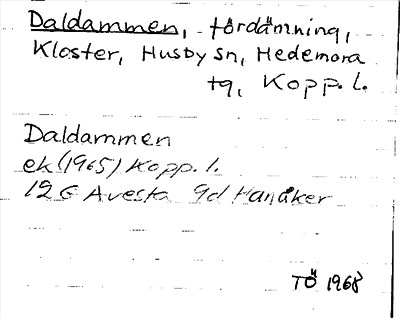 Daldammen, fördämning,
Kloster, Husby sn, Hedemora
tg, Kopp. l.
Daldammen
ek (1965) Kopp. l.
12G Avesta 9d Hanåker
TÖ 1968